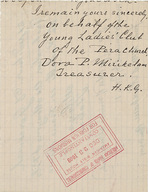 I remain yours sincerely
on behalf of the
Young Ladies' Club
of the Pera Church
Dora P. Mirikelam
Treasurer.
H.K.G.